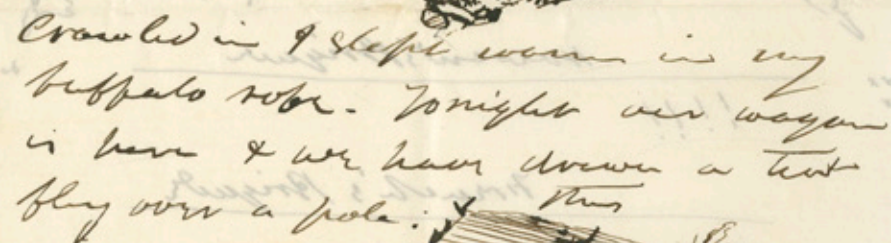 Crawled in & slept warm in my
buffalo robe. Tonight our wagon
is here & we have drawn a tent
fly over a pole. thus